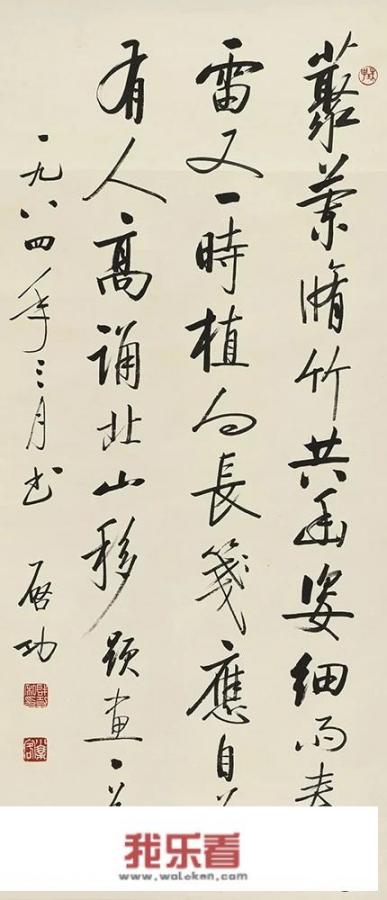 藂蘭脩竹共幽姿細雨春
雷又一時植向長箋應自
有人高誦北山移題畫
一九八四年三月書 啓功
我乐看
www.woleken.com